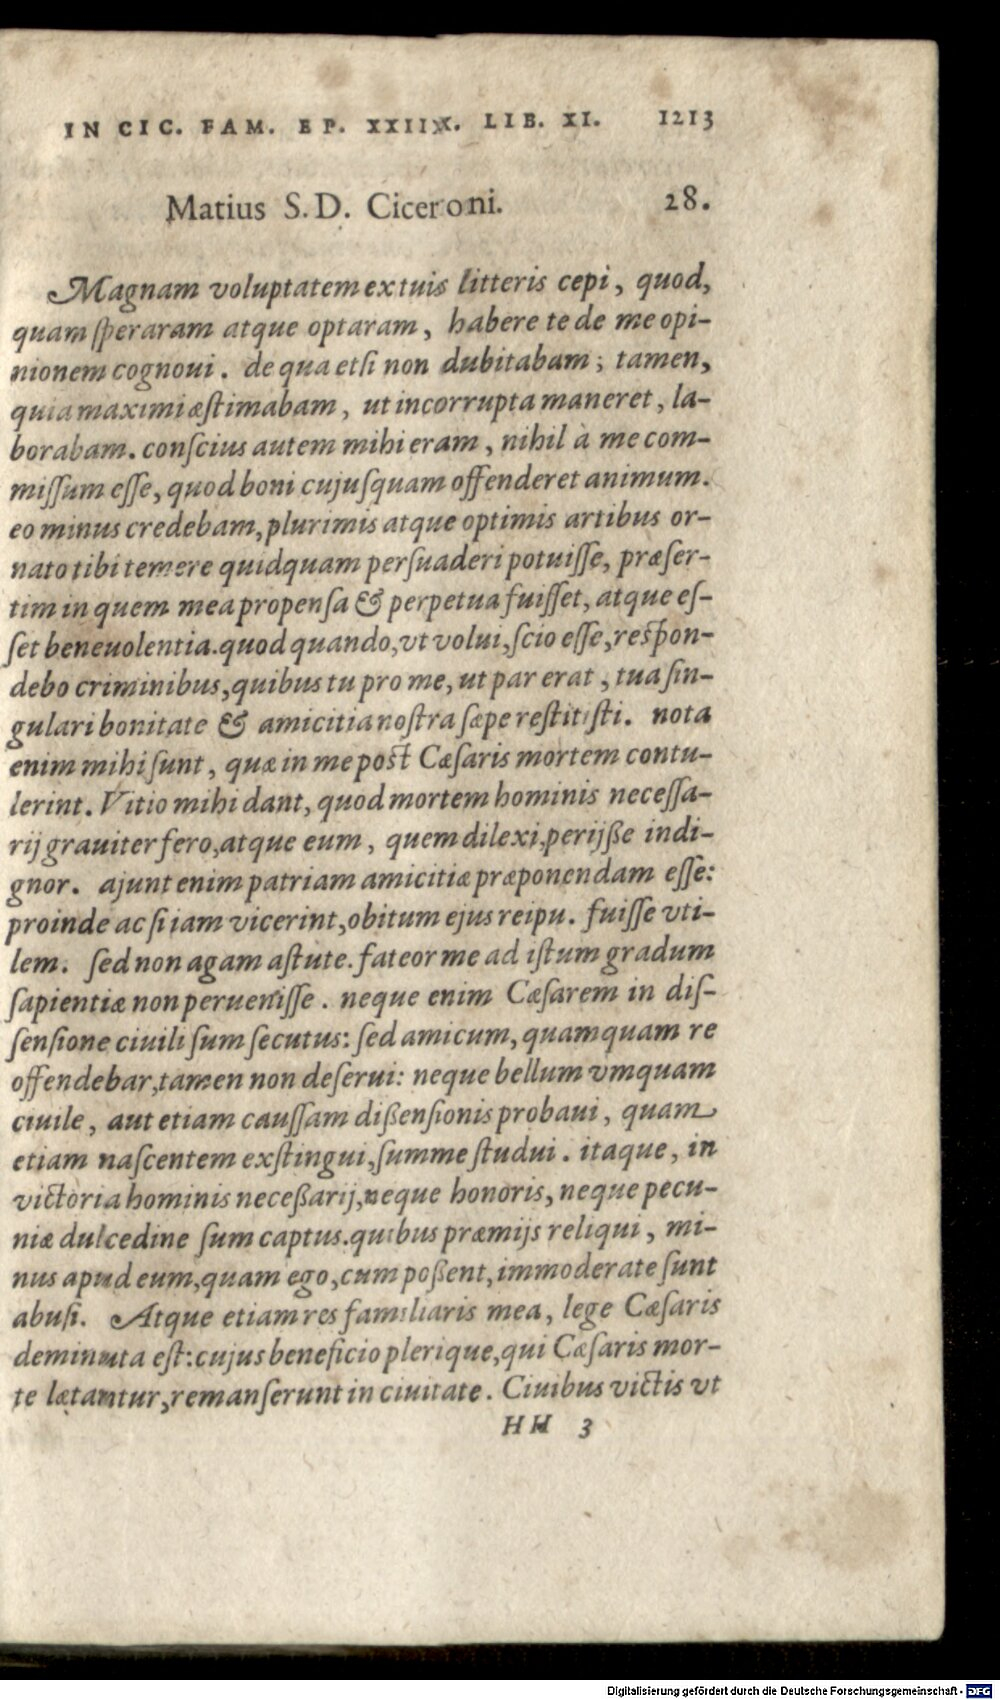 IN CIC. FAM. EP. XXIIX. LIB. XI. 1213
Matius S. D. Ciceroni. 28.
Magnam voluptatem ex tuis litteris cepi, quod,
quam ſperaram atque optaram, habere te de me opi-
nionem cognoui. de qua etſi non dubitabam; tamen,
quia maximi æſtimabam, ut incorrupta maneret, la-
borabam. conſcius autem mihi eram, nihil à me com-
miſſum eſſe, quod boni cujuſquam offenderet animum.
eo minus credebam, plurimis atque optimis artibus or-
nato tibi temere quidquam perſuaderi potuiſſe, præſer-
tim in quem mea propenſa & perpetua fuiſſet, atque eſ-
ſet beneuolentia. quod quando, vt volui, ſcio eſſe, reſpon-
debo criminibus, quibus tu pro me, ut par erat, tua ſin-
gulari bonitate & amicitia noſtra ſæpe reſtitiſti. nota
enim mihi ſunt, quæ in me poſt Cæſaris mortem contu-
lerint. Vitio mihi dant, quod mortem hominis neceſſa-
rij grauiter fero, atque eum, quem dilexi, perijße indi-
gnor. ajunt enim patriam amicitiæ præponendam eſſe:
proinde ac ſi iam vicerint, obitum ejus reipu. fuiſſe vti-
lem. ſed non agam aſtute. fateor me ad iſtum gradum
ſapientiæ non perueniſſe. neque enim Cæſarem in diſ-
ſenſione ciuili ſum ſecutus: ſed amicum, quamquam re
offendebar, tamen non deſerui: neque bellum vmquam
ciuile, aut etiam cauſſam dißenſionis probaui, quam
etiam naſcentem exſtingui, ſumme ſtudui. itaque, in
victoria hominis neceßarij, neque honoris, neque pecu-
niæ dulcedine ſum captus. quibus præmijs reliqui, mi-
nus apud eum, quam ego, cum poßent, immoderate ſunt
abuſi. Atque etiam res familiaris mea, lege Cæſaris
deminuta eſt: cujus beneficio plerique, qui Cæſaris mor-
te lætantur, remanſerunt in ciuitate. Ciuibus victis vt
HH 3
Digitalisierung gefördert durch die Deutsche Forschungsgemeinschaft - DFG